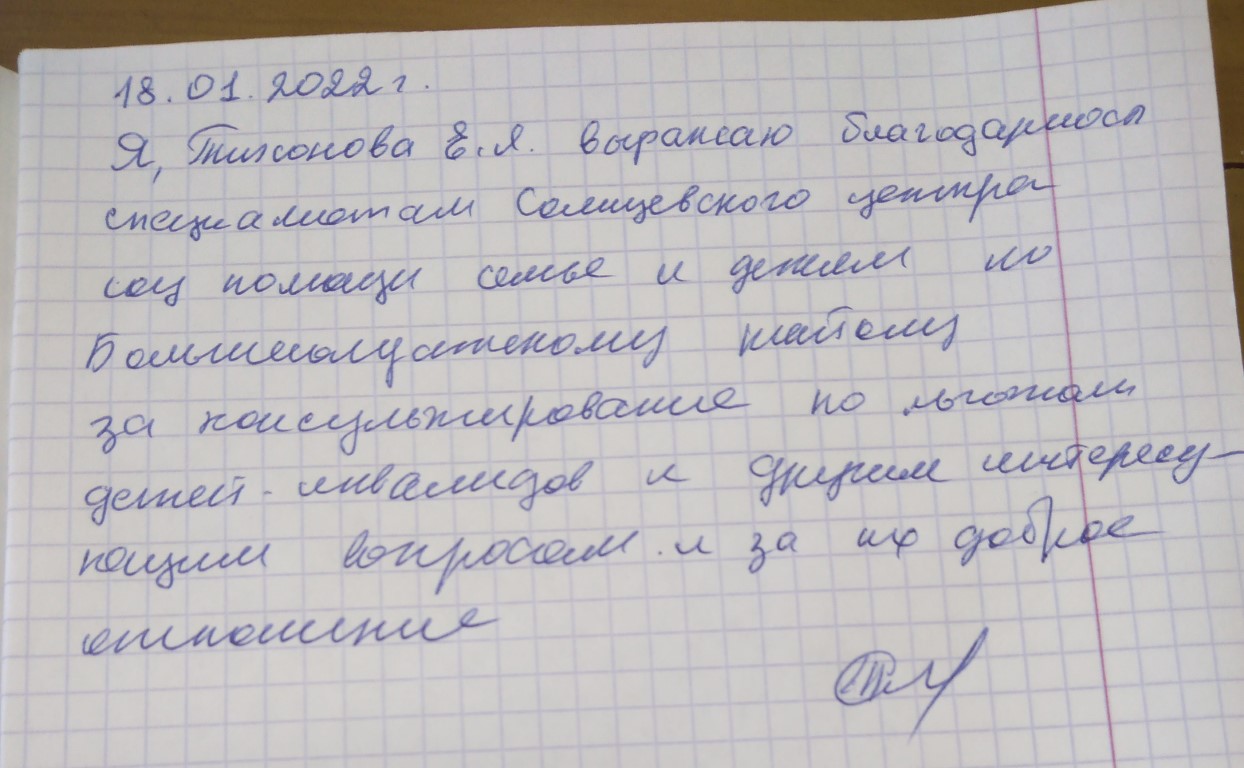 18.01.2022 г.
Я, Тихонова Е.Я. выражаю благодарность
специалистам Солнцевского центра
соц помощи семье и детям по
Большесолдатскому району
за консультирование по льготам
детей-инвалидов и другим интересу-
ющим вопросам и за их доброе
отношение